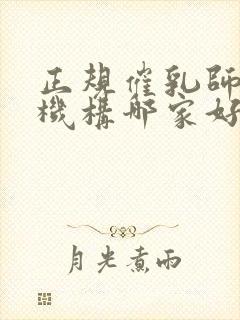 正規催乳師
機構哪家好
月光煮雨